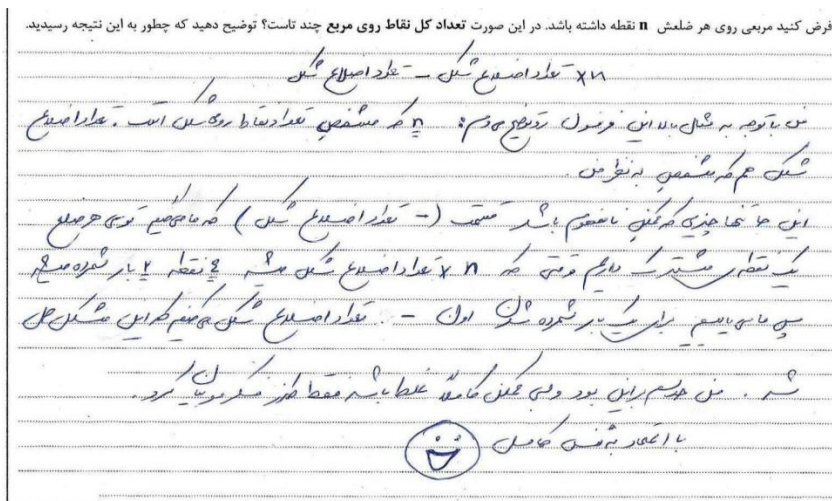 فرض کنید مربعی روی هر ضلعش n نقطه داشته باشد. در این صورت تعداد کل نقاط روی مربع چند تاست؟ توضیح دهید که چطور به این نتیجه رسیدید.
تعداد اضلاع شکل - تعداد اضلاع شکل × n
من با توجه به مثال بالا این فرمول رو توضیح می دم: n که مشخص تعداد نقاط روی شکل است. تعداد اضلاع
شکل هم که مشخص به نظر من.
این جا تنها چیزی که ممکن نامفهوم باشد قسمت (- تعداد اضلاع شکل) که ما می توی هر ضلع
یک نقطه ی مشترک داریم وقتی که n × تعداد اضلاع شکل میشه نقطه ۲ بار شمرده میشه
پس ما می یایم برای یک بار شمرده شدن اون - تعداد اضلاع شکل می کنیم که این مشکل حل
شه. من حدسم این بود ولی ممکن کاملاً غلط باشه فقط طرز فکرمو بیان کرد.
با اعتماد به نفس کامل